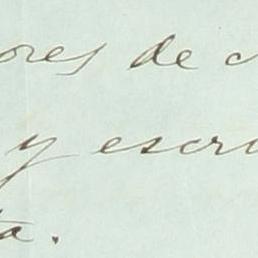 ores de
y escri
ta.